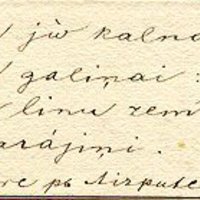 jŭ kalna
galiņai :
linu zem
arājiņi .
re pb Aizpute